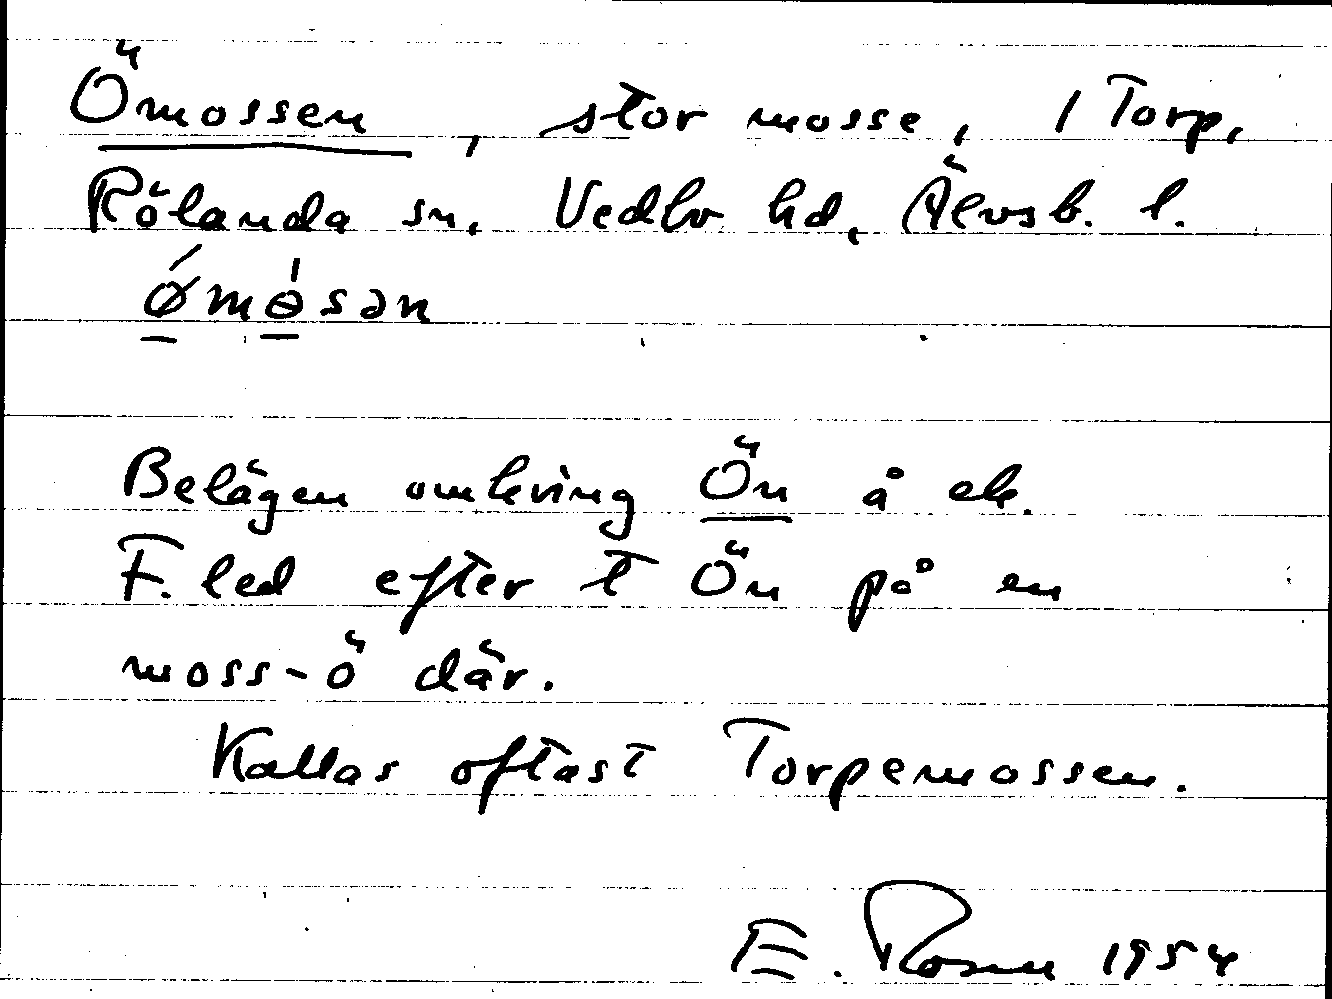 Ömossen, stor mosse, 1 Torp,
Rölanda sn, Vedbo hd, Älvsb. l.
ǿmɵ́sən
Belägen omkring Ön å ek.
F. led efter t Ön på en
moss-ö där.
Kallas oftast Torpemossen.
E. Rosell 1954